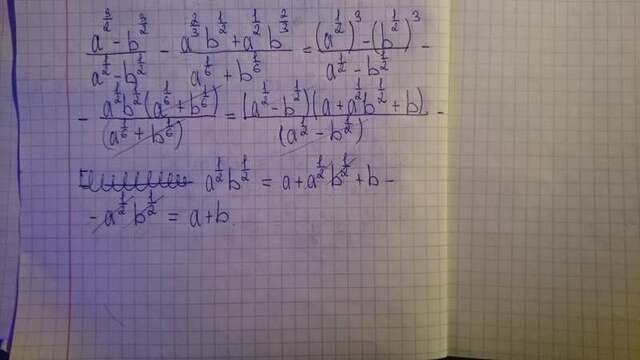 \frac{a^{\frac{3}{2}} - b^{\frac{3}{2}}}{a^{\frac{1}{2}} - b^{\frac{1}{2}}} - \frac{a^{\frac{2}{3}} b^{\frac{1}{2}} + a^{\frac{1}{2}} b^{\frac{2}{3}}}{a^{\frac{1}{6}} + b^{\frac{1}{6}}} = \frac{(a^{\frac{1}{2}})^3 - (b^{\frac{1}{2}})^3}{a^{\frac{1}{2}} - b^{\frac{1}{2}}} -
- \frac{a^{\frac{1}{2}} b^{\frac{1}{2}} (a^{\frac{1}{6}} + b^{\frac{1}{6}})}{(a^{\frac{1}{6}} + b^{\frac{1}{6}})} = \frac{(a^{\frac{1}{2}} - b^{\frac{1}{2}})(a + a^{\frac{1}{2}} b^{\frac{1}{2}} + b)}{(a^{\frac{1}{2}} - b^{\frac{1}{2}})} -
- a^{\frac{1}{2}} b^{\frac{1}{2}} = a + a^{\frac{1}{2}} b^{\frac{1}{2}} + b -
- a^{\frac{1}{2}} b^{\frac{1}{2}} = a + b.